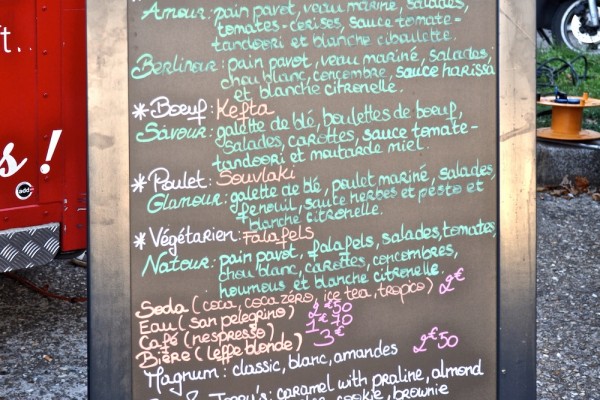 Amour: pain pavot, veau mariné, salades,
tomates-cerises, sauce tomate-
tandoori et blanche ciboulette.
Berlinour: pain pavot, veau mariné, salades,
chou blanc, concombre, sauce harissa
et blanche citronelle.
*Boeuf: Kefta
Savour: galette de blé, boulettes de boeuf,
salades, carottes, sauce tomate-
tandoori et moutarde miel.
*Poulet: Souvlaki
Glamour: galette de blé, poulet mariné, salades,
fenouil, saute herbes et pesto et
blanche citronelle.
*Végétarien: Falafels
Natour: pain pavot, falafels, salades, tomates,
chou blanc, carottes, concombres,
houmous, et blanche citronelle.
Soda (coca, coca zéro, ice tea, tropico) 2€
Eau (san pelegrino) 2€50
Café (nespresso) 1€70
Bière (leffe blonde) 3€
Magnum: classic, blanc, amandes 2€50
caramel with praline, almond
cookie, brownie
t..
s!
add